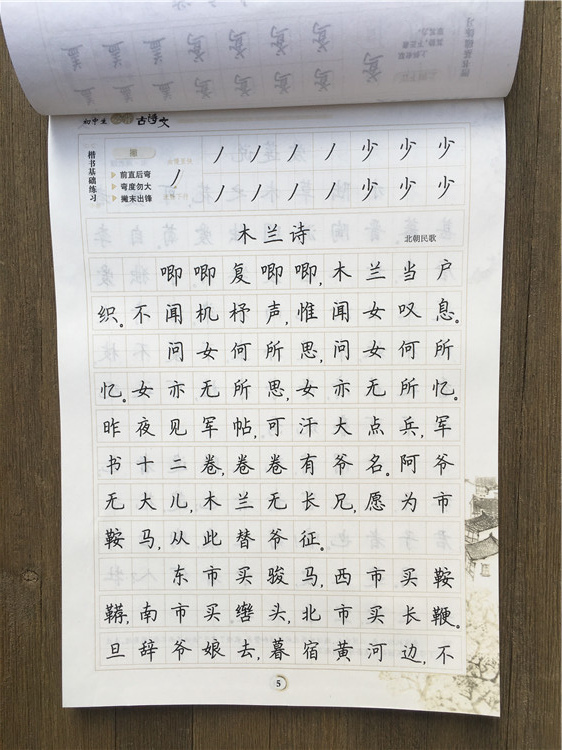 初中生 古诗文
楷书基础练习
撇
前直后弯
弯度勿大
撇末出锋
丿
丿 丿 丿 丿 少 少 少
丿 丿 丿 丿 少 少 少
木兰诗
北朝民歌
唧唧复唧唧,木兰当户
织。不闻机杼声,惟闻女叹息。
问女何所思,问女何所
忆。女亦无所思,女亦无所忆。
昨夜见军帖,可汗大点兵,军
书十二卷,卷卷有爷名。阿爷
无大儿,木兰无长兄,愿为市
鞍马,从此替爷征。
东市买骏马,西市买鞍
鞯,南市买辔头,北市买长鞭。
旦辞爷娘去,暮宿黄河边,不
5